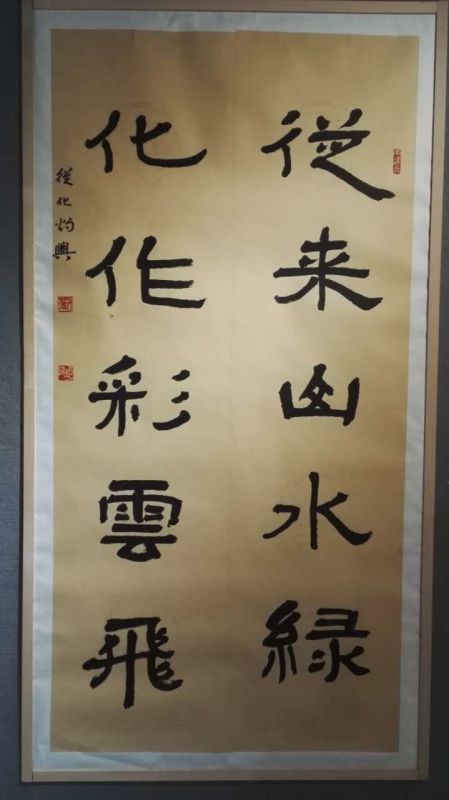 從来山水緑
化作彩雲飛
從化灼興